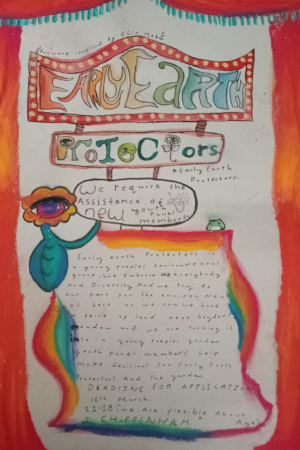 Artwork inspired by Ella
EARLY EARTH
PROTECTors
*Early Earth
Protectors.
We require the
Assistance of
New youth
Panel
members!
Early earth Protectors is
a young peoples environmental
group. We Embrace everybody
and Diversity. And we try do
our part for the environmen
as best as we can. We have
a piece of land next
and we are turning it
into a young peoples garden.
youth panel members help
make decisions for Early Earth
Protectors And the garden.
DEADLINE FOR APPLICATION
16th March.
(We are flexible About
Age)
CHIPPENHAM